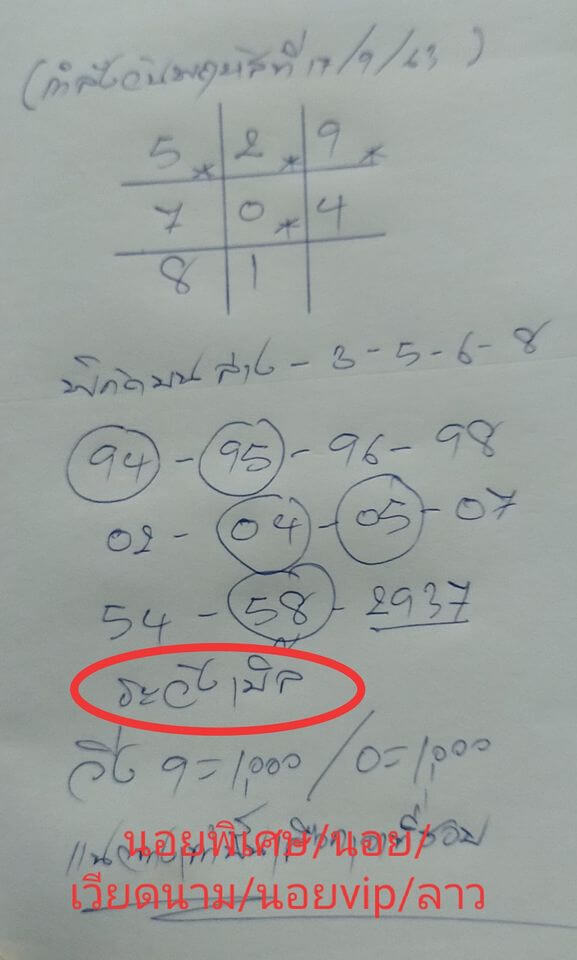 (กำลังวันพฤหัสที่ 17/9/63)
5 * 2 * 9 *
7 0 * 4
8 1
พิกัดบน ล่าง - 3 - 5 - 6 - 8
94 - 95 - 96 - 98
02 - 04 - 05 - 07
54 - 58 - 2937
ระวังเบิ้ล
วิ่ง 9 = 1,000 / 0 = 1,000
นอยพิเศษ/นอย/
เวียดนาม/นอยvip/ลาว